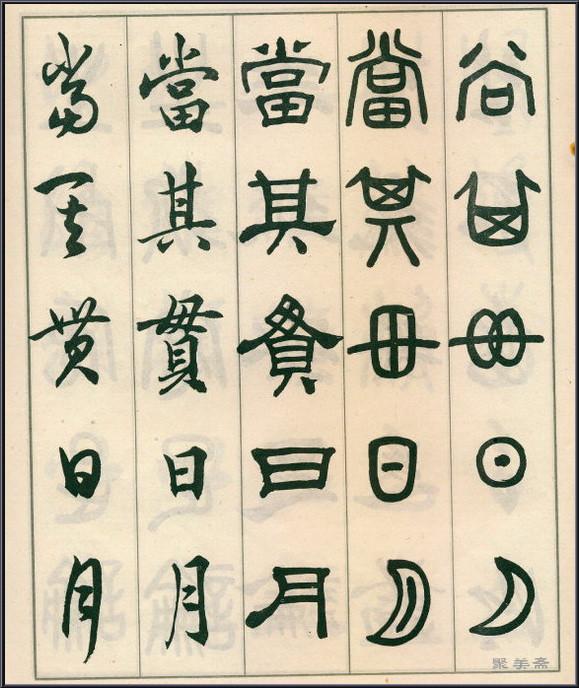 當其貫日月
當其貫日月
當其貫日月
當其貫日月
當其貫日月
聚美斋